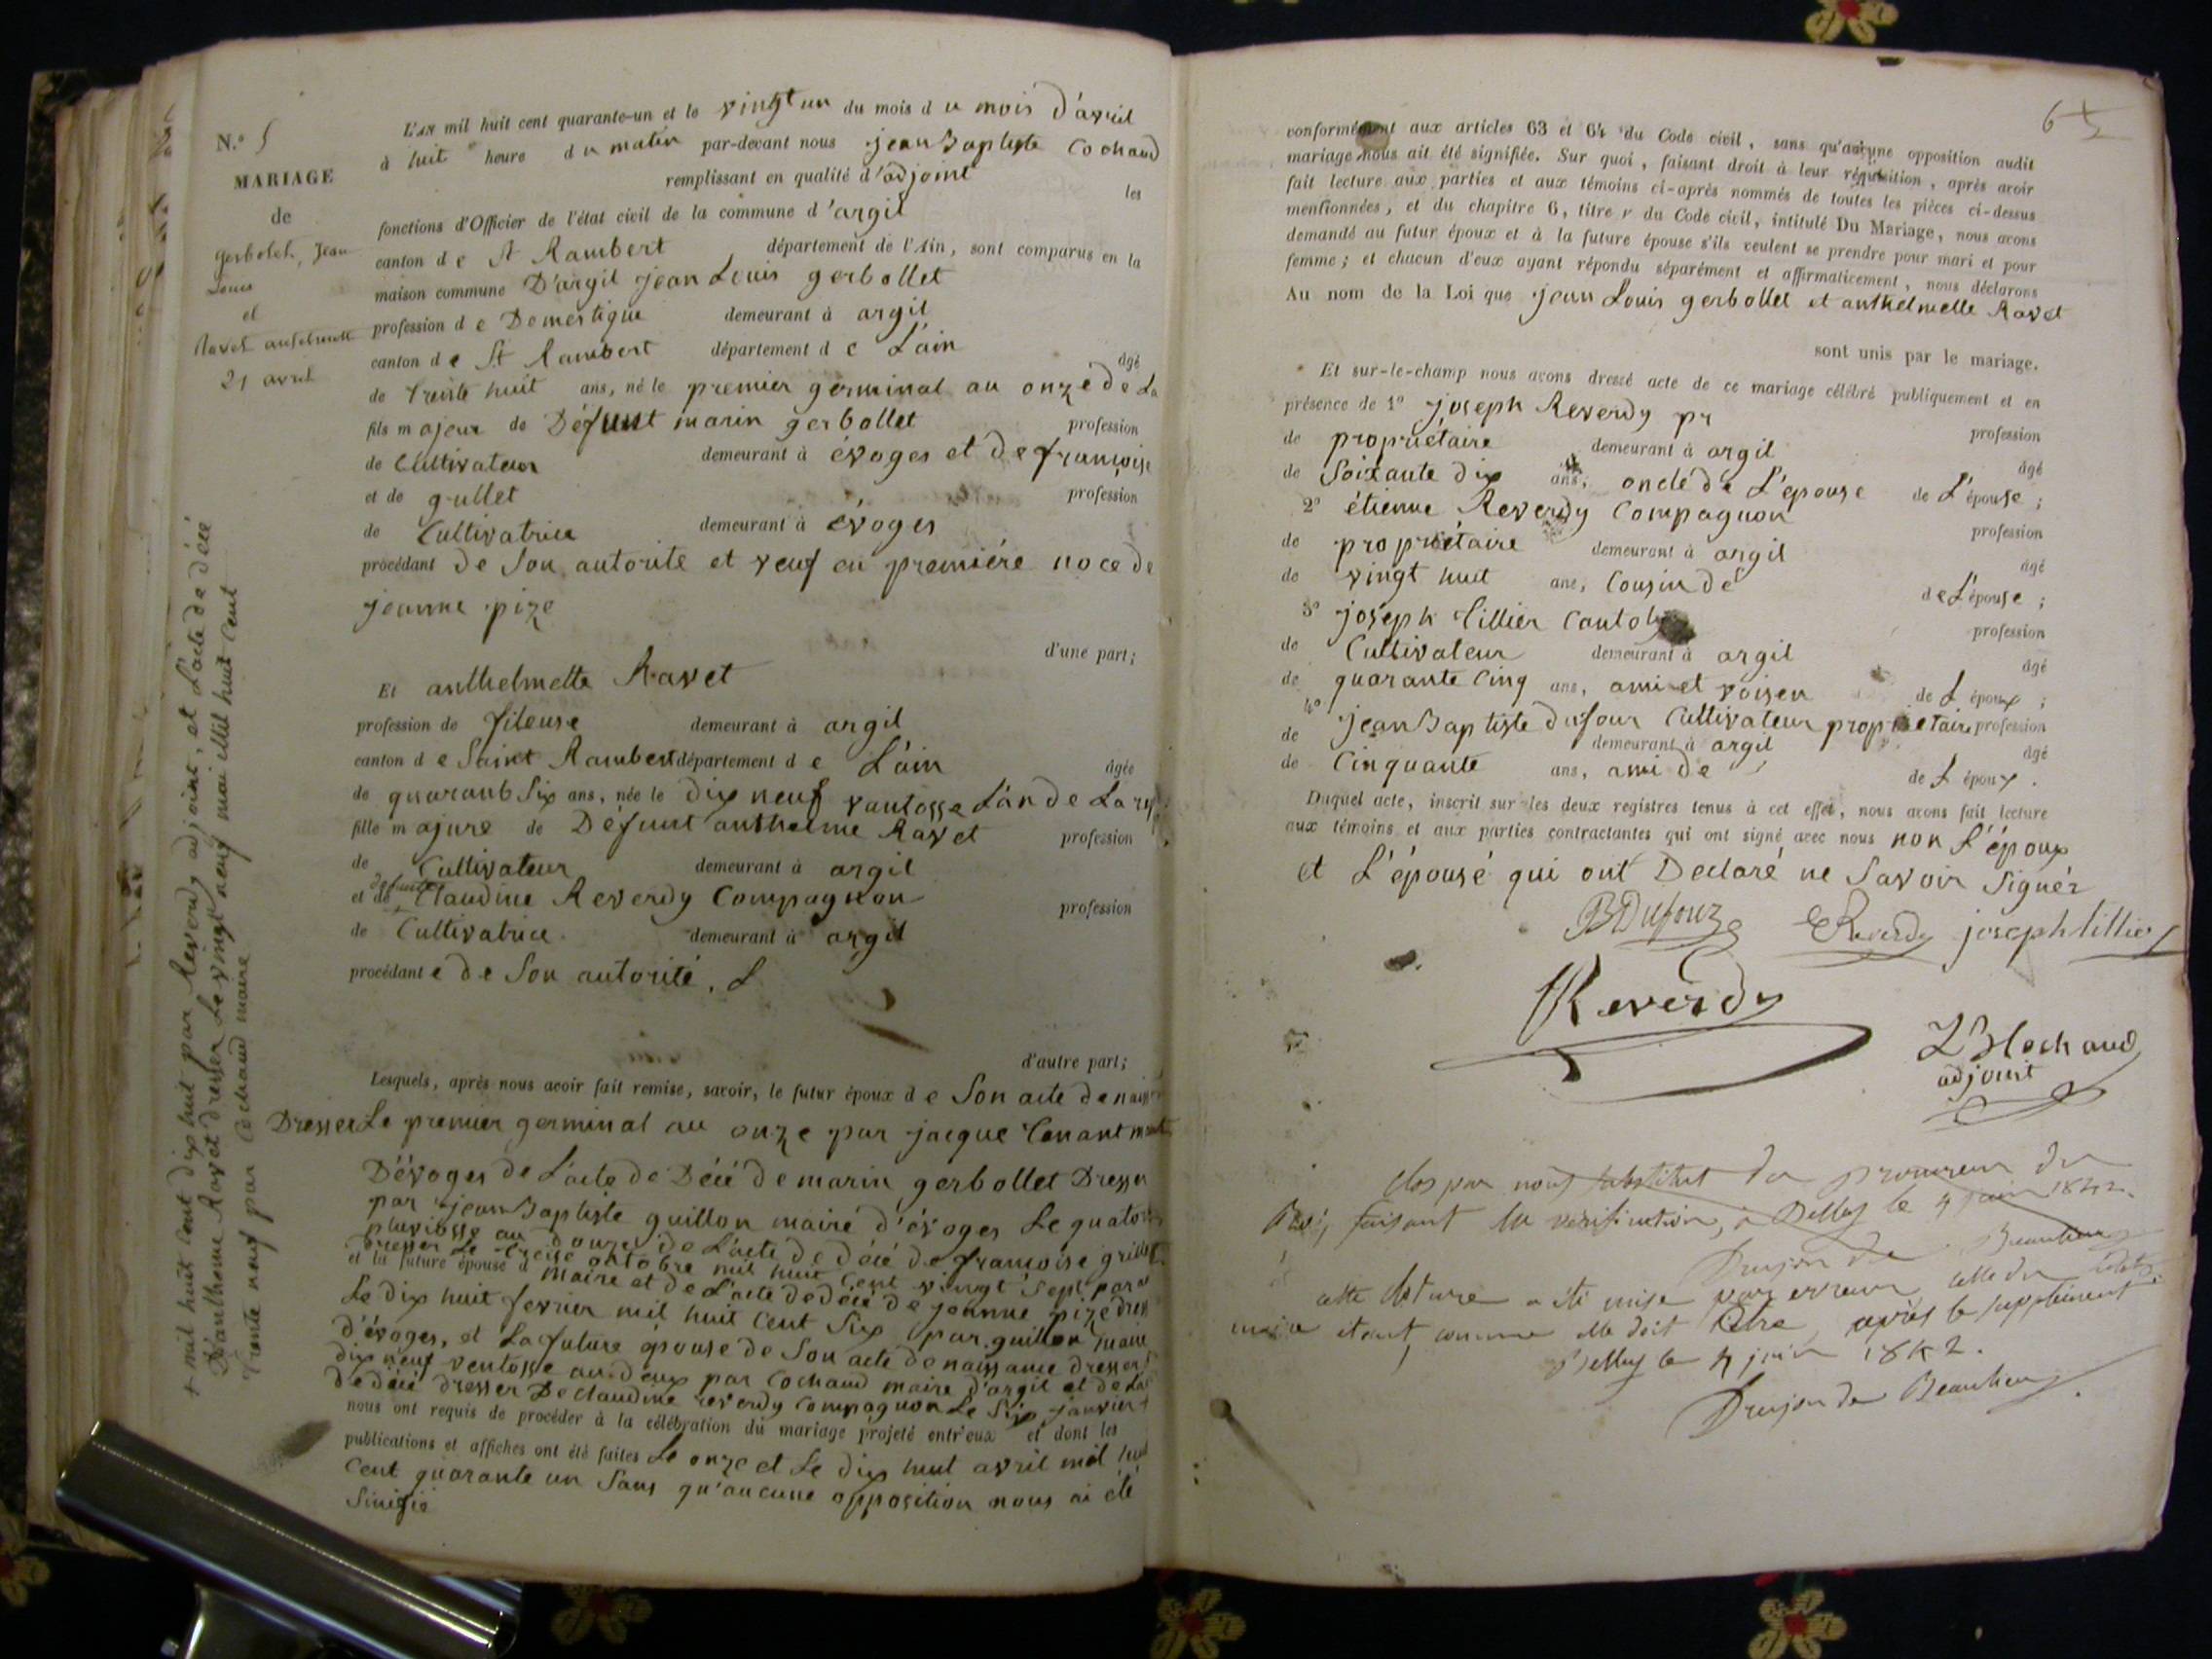 N.° 5
MARIAGE
de
gerbolet, Jean
Louis
et
Ravet anselmette
21 avril
L'AN mil huit cent quarante-un et le vingt un du mois d u mois d'avril
à huit heure du matin par-devant nous jean Baptiste Cochaud
remplissant en qualité d'adjoint les
fonctions d'Officier de l'état civil de la commune d'argil
canton de St Rambert département de l'Ain, sont comparus en la
maison commune D'argil jean Louis gerbollet
profession de Domestique demeurant à argil
canton de St Rambert département de L'ain âgé
de trente huit ans, né le premier germinal au onze de La
fils majeur de Défunt marin gerbollet profession
de Cultivateur demeurant à évoges et de françoise
et de gullet profession
de Cultivatrice demeurant à évoges
procédant de Son autorité et veuf en première noce de
jeanne pize
d'une part;
Et anthelmette Ravet
profession de fileuse demeurant à argil
canton de Saint Rambert département de L'ain âgée
de quarante Six ans, née le dix neuf vantosse L'an de La
fille majure de Défunt anthelme Ravet profession
de Cultivateur demeurant à argil
et de défunte Claudine Reverdy Compagnon profession
de Cultivatrice demeurant à argil
procédante de Son autorité,
d'autre part;
Lesquels, après nous avoir fait remise, savoir, le futur époux de Son acte de
Dresser Le premier germinal au onze par jacque tenant
D'évoges de L'acte de Décé de marin gerbollet Dresser
par jean Baptiste guillon maire d'évoges Le
pluviosse au douze de L'acte de décé de françoise
dresser Le treise octobre mil huit Cent vingt Sept par
et la future épouse d maire et de L'acte de décé de jeanne pize
Le dix huit fevrier mil huit Cent Six par guillon maire
d'évoges, et La future epouse de Son acte de naissance dresser
dix neuf ventosse au deux par Cochaud maire d'argil et de
de décé dresser De claudine reverdy Compagnon Le Six janvier
nous ont requis de procéder à la célébration du mariage projeté entr'eux et dont les
publications et affiches ont été faites Le onze et Le dix huit avril mil
Cent quarante un Sans qu'aucune opposition nous ai été
Sinifié
+ mil huit Cent dix huit par Reverdy adjoint, et L'acte de décé
D'anthelme Ravet dresser Le vingt neuf mai mil huit Cent
trente neuf par Cochaud maire
conformément aux articles 63 et 64 du Code civil, sans qu'aucune opposition audit
mariage nous ait été signifiée. Sur quoi, faisant droit à leur réquisition, après avoir
fait lecture aux parties et aux témoins ci-après nommés de toutes les pièces ci-dessus
mentionnées, et du chapitre 6, titre v du Code civil, intitulé Du Mariage, nous avons
demandé au futur époux et à la future épouse s'ils veulent se prendre pour mari et pour
femme; et chacun d'eux ayant répondu séparément et affirmativement, nous déclarons
Au nom de la Loi que jean Louis gerbollet et anthelmette Ravet
sont unis par le mariage.
Et sur-le-champ nous avons dressé acte de ce mariage célébré publiquement et en
présence de 1° joseph Reverdy pr
profession
de propriétaire demeurant à argil
âgé
de Soixante dix ans, oncle de L'épouse de L'épouse;
2° étienne Reverdy Compagnon
profession
de propriétaire demeurant à argil
âgé
de vingt huit ans, Cousin de de L'épouse;
3° joseph tillier
profession
de Cultivateur demeurant à argil
âgé
de quarante Cinq ans, ami et voisen de L époux;
4° jean Baptiste dufour Cultivateur proprietaire profession
de demeurant à argil
âgé
de Cinquante ans, ami de de L époux.
Duquel acte, inscrit sur les deux registres tenus à cet effet, nous avons fait lecture
aux témoins et aux parties contractantes qui ont signé avec nous non L'époux
et L'épouse qui ont Declaré ne Savoir Signér
B Dufour E Reverdy joseph tillier
Reverdy
Cochaud
adjoint
Clos par nous substitut du procureur du
Roi, faisant la vérification, à Belley le 4 juin 1842.
Drujon de Beaulieu
cette cloture a été mise par erreur, celle du
étant, comme elle doit l'être, après le supplément
Belley le 4 juin 1842.
Drujon de Beaulieu